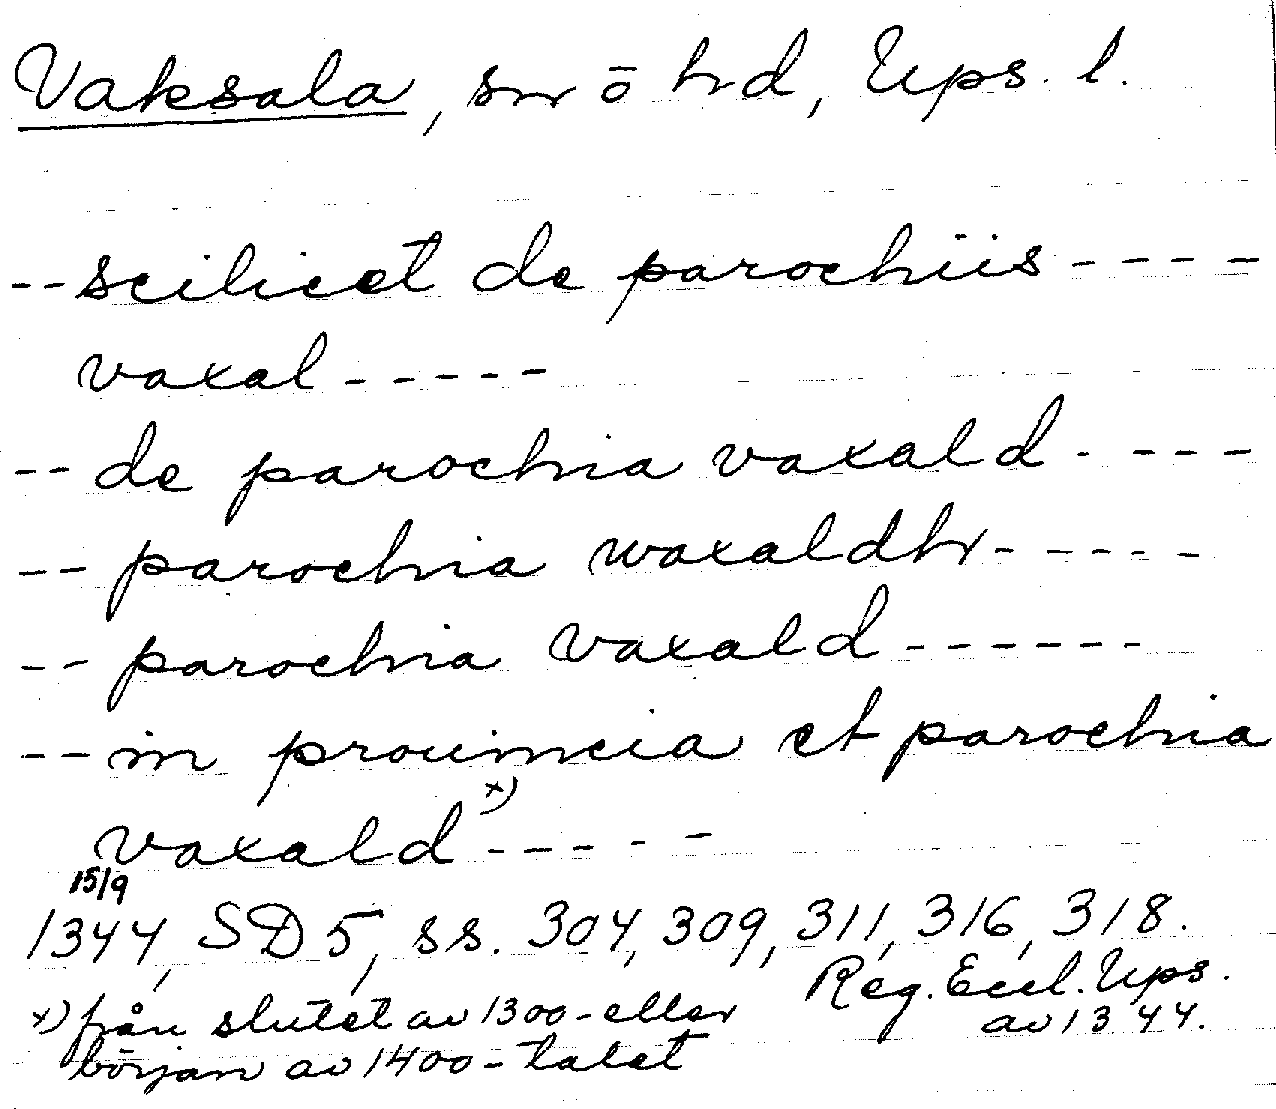 Vaksala, sn ō hd, Ups. l.
--scilicet de parochiis----
vaxal-----
--de parochia vaxald----
--parochia waxaldhr-----
--parochia vaxald------
--in prouincia et parochia
vaxald x)-----
15/9
1344, SD 5, ss. 304, 309, 311, 316, 318.
Reg. Eccl. Ups.
av 1344.
x) från slutet av 1300-eller
början av 1400-talet